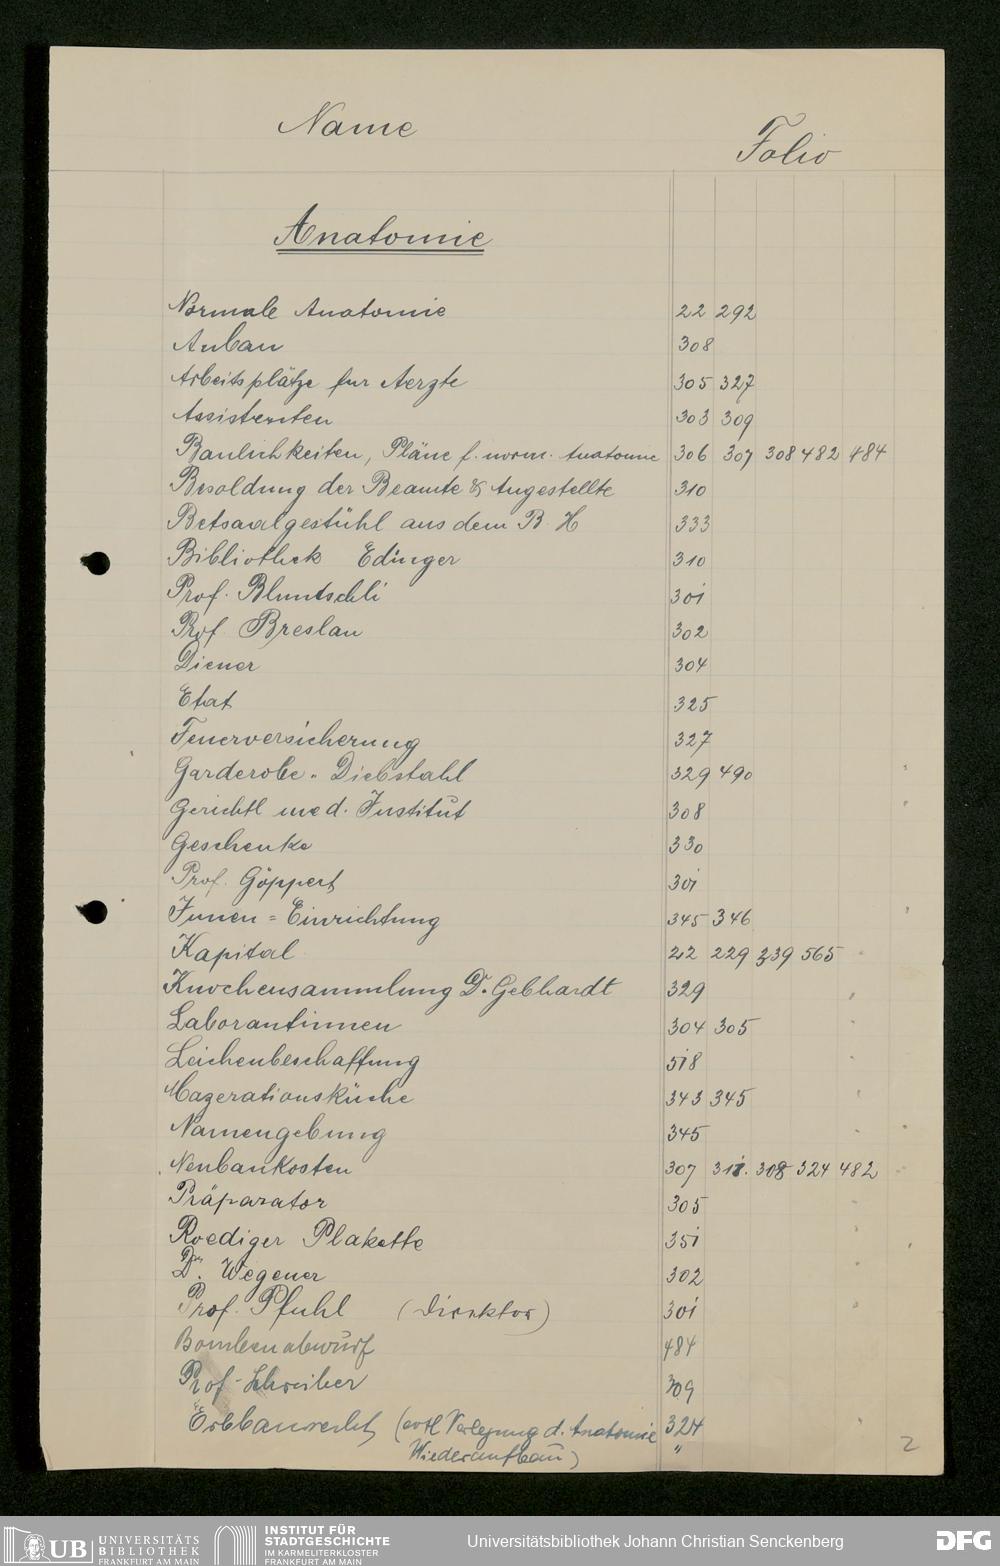 Name
Folio
Anatomie
Normale Anatomie 22 292
Anbau 308
Arbeitsplätze fur Aerzte 305 327
Assistenten 303 309
Baulichkeiten, Pläne f. norm. Anatomie 306 307 308 482 484
Besoldung der Beamte & Angestellte 310
Betsaalgestühl aus dem B. H 333
Bibliothek Edinger 310
Prof. Bluntschli 301
Prof. Breslau 302
Diener 304
Etat 325
Feuerversicherung 327
Garderobe - Diebstahl 329 490
Gerichtl med. Institut 308
Geschenke 330
Prof. Göppert 301
Innen = Einrichtung 345 346
Kapital 22 229 239 565
Knochensammlung Dr. Gebhardt 329
Laborantinnen 304 305
Leichenbeschaffung 518
Mazerationsküche 343 345
Namengebung 345
Neubaukosten 307 311. 308 324 482
Präparator 305
Roediger Plakette 351
Dr. Wegener 302
Prof. Pfuhl (Direktor) 301
Bombenabwurf 484
Prof. Schreiber 309
Erbbaurecht (evtl Verlegung d. Anatomie 324
Wiederaufbau) "
2
UB UNIVERSITÄTS
BIBLIOTHEK
FRANKFURT AM MAIN
INSTITUT FÜR
STADTGESCHICHTE
IM KARMELITERKLOSTER
FRANKFURT AM MAIN
Universitätsbibliothek Johann Christian Senckenberg
DFG